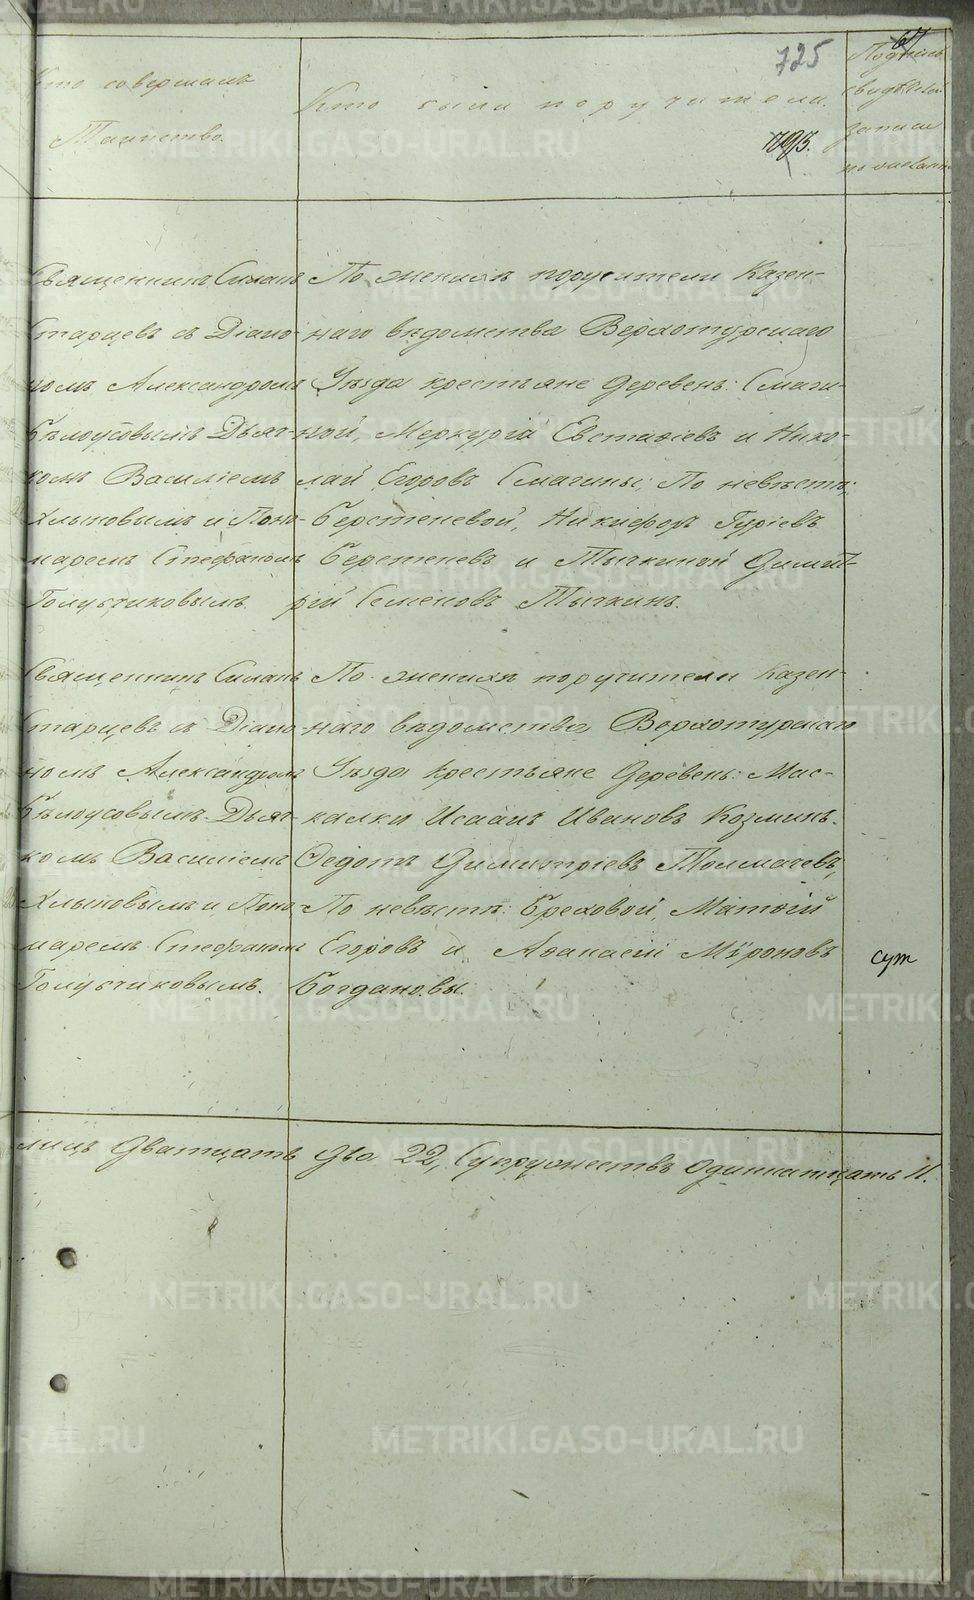 725
Кто совершалъ
Таинство.
Кто были поручители.
793.
Подпись
свидѣтел
записи
по
Священникъ Силанъ
Старцевъ съ Діако-
номъ Александромъ
Бѣлоусовымъ Дьяч-
комъ Василіемъ
Хлыновымъ и Поно-
маремъ Стефаномъ
Голубчиковымъ.
По женихѣ поручители Казен-
наго вѣдомства Верхотурскаго
Уѣзда крестьяне Деревень: Смаги-
ной, Меркурій Евстафіевъ и Нико-
лай Егоровъ Смагины; По невѣстѣ;
Берстеневой, Никифоръ Гуріевъ
Берстеневъ и Тычкиной Димит-
рій Семеновъ Тычкинъ.
Священникъ Силанъ
Старцевъ съ Діако-
номъ Александромъ
Бѣлоусовымъ Дьяч-
комъ Василіемъ
Хлыновымъ и Поно-
маремъ Стефаномъ
Голубчиковымъ.
По женихѣ поручители Казен-
наго вѣдомства Верхотурскаго
Уѣзда крестьяне Деревень: Мас-
калки Исаакъ Ивановъ Козминъ.
Ѳедотъ Димитріевъ Толмачевъ,
По невѣстѣ: Бреховой, Матѳій
Егоровъ и Аѳанасій Мѵроновъ
Богдановы.
сут
лицъ Дватцать два 22, Супружествъ одиннатцать 11.
METRIKI.GASO-URAL.RU